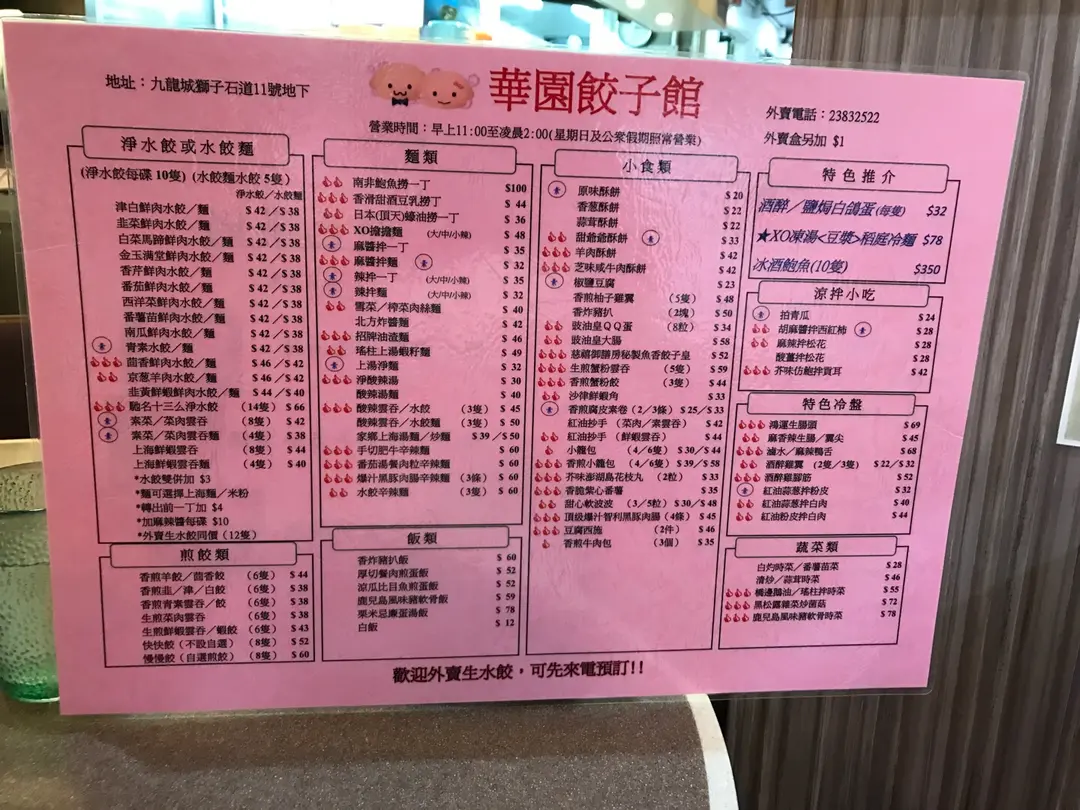 地址：九龍城獅子石道11號地下
華園餃子館
營業時間：早上11:00至凌晨2:00(星期日及公衆假期照常營業)
外賣電話：23832522
外賣盒另加 $1
淨水餃或水餃麵
(淨水餃每碟 10隻) (水餃麵水餃 5隻)
淨水餃／水餃麵
津白鮮肉水餃／麵 $ 42 ／$ 38
韭菜鮮肉水餃／麵 $ 42 ／$ 38
白菜馬蹄鮮肉水餃／麵 $ 42 ／$ 38
金玉滿堂鮮肉水餃／麵 $ 42 ／$ 38
香芹鮮肉水餃／麵 $ 42 ／$ 38
番茄鮮肉水餃／麵 $ 42 ／$ 38
西洋菜鮮肉水餃／麵 $ 42 ／$ 38
番薯苗鮮肉水餃／麵 $ 42 ／$ 38
南瓜鮮肉水餃／麵 $ 42 ／$ 38
素 青素水餃／麵 $ 42 ／$ 38
茴香鮮肉水餃／麵 $ 46 ／$ 42
京葱羊肉水餃／麵 $ 46 ／$ 42
韭黃鮮蝦鮮肉水餃／麵 $ 44 ／$ 40
馳名十三么淨水餃 （14隻） $ 66
素 素菜／菜肉雲吞 （8隻） $ 42
素 素菜／菜肉雲吞麵 （4隻） $ 38
上海鮮蝦雲吞 （8隻） $ 44
上海鮮蝦雲吞麵 （4隻） $ 40
*水餃雙併加 $3
*麵可選擇上海麵／米粉
*轉出前一丁加 $4
*加麻辣醬每碟 $10
*外賣生水餃同價（12隻）
煎餃類
香煎羊餃／茴香餃 （6隻） $ 44
香煎韭／津／白餃 （6隻） $ 38
香煎青素雲吞／餃 （6隻） $ 38
生煎菜肉雲吞 （6隻） $ 38
生煎鮮蝦雲吞／蝦餃 （6隻） $ 43
快快餃（不設自選） （8隻） $ 52
慢慢餃（自選煎餃） （8隻） $ 60
麵類
南非鮑魚撈一丁 $100
香滑甜酒豆乳撈丁 $ 44
日本(頂天)蠔油撈一丁 $ 36
XO擔擔麵 (大/中/小辣) $ 48
素 麻醬拌一丁 $ 35
麻醬拌麵 素 $ 32
素 辣拌一丁 (大/中/小辣) $ 35
素 辣拌麵 (大/中/小辣) $ 32
雪菜／榨菜肉絲麵 $ 40
北方炸醬麵 $ 42
招牌油渣麵 $ 46
瑤柱上湯蝦籽麵 $ 49
素 上湯淨麵 $ 32
淨酸辣湯 $ 30
酸辣湯麵 $ 40
酸辣雲吞／水餃 （3隻） $ 45
酸辣雲吞／水餃麵 （3隻） $ 50
家鄉上海湯麵／炒麵 $ 39／$ 50
手切肥牛辛辣麵 $ 60
番茄湯餐肉粒辛辣麵 $ 60
爆汁黑豚肉腸辛辣麵 （3條） $ 60
水餃辛辣麵 （3隻） $ 60
飯類
香炸豬扒飯 $ 60
厚切餐肉煎蛋飯 $ 52
涼瓜比目魚煎蛋飯 $ 52
鹿兒島風味豬軟骨飯 $ 59
粟米忌廉蛋湯飯 $ 78
白飯 $ 12
小食類
素 原味酥餅 $ 20
香葱酥餅 $ 22
蒜茸酥餅 $ 22
甜爺爺酥餅 素 $ 33
羊肉酥餅 $ 42
芝味咸牛肉酥餅 $ 42
素 椒鹽豆腐 $ 23
香煎柚子雞翼 （5隻） $ 48
香炸豬扒 （2塊） $ 50
豉油皇ＱＱ蛋 （8粒） $ 34
豉油皇大腸 $ 58
慈禧御膳房秘製魚香餃子皇 $ 52
生煎蟹粉雲吞 （5隻） $ 59
香煎蟹粉餃 （3隻） $ 44
沙律鮮蝦角 $ 33
素 香煎腐皮素卷（2／3條） $ 25／$ 33
紅油抄手 （菜肉／素雲吞） $ 42
紅油抄手 （鮮蝦雲吞） $ 44
小籠包 （4／6隻） $ 30／$ 44
香煎小籠包 （4／6隻） $ 39／$ 58
芥味澎湖島花枝丸 （2粒） $ 33
香脆紫心番薯 $ 35
甜心軟波波 （3／5粒） $ 30／$ 48
頂級爆汁智利黑豚肉腸（4條） $ 45
豆腐西施 （2件） $ 46
香煎牛肉包 （3個） $ 35
特色推介
酒醉／鹽焗白鴿蛋(每隻) $32
★XO凍湯<豆漿>稻庭冷麵 $78
冰酒鮑魚(10隻) $350
涼拌小吃
素 拍青瓜 $ 24
胡麻醬拌西紅柿 素 $ 28
麻辣拌松花 $ 28
酸薑拌松花 $ 28
芥味仿鮑拌貢耳 $ 42
特色冷盤
鴻運生腸頭 $ 69
麻香辣生腸／翼尖 $ 45
滷水／麻辣鴨舌 $ 68
酒醉雞翼 （2隻／3隻） $ 22／$ 32
酒醉雞膠筋 $ 52
素 紅油蒜葱拌粉皮 $ 32
紅油蒜葱拌白肉 $ 40
紅油粉皮拌白肉 $ 44
蔬菜類
白灼時菜／番薯苗菜 $ 28
清炒／蒜茸時菜 $ 46
橋邊鵝油／瑤柱拌時菜 $ 55
黑松露雜菜炒菌菇 $ 72
鹿兒島風味豬軟骨時菜 $ 78
歡迎外賣生水餃，可先來電預訂!!